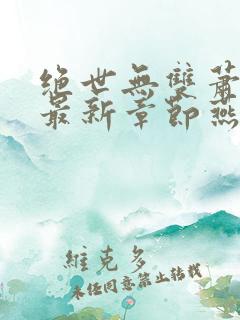 絕世無雙蕭
最新章節燕
維克多
未任同意禁止轉載